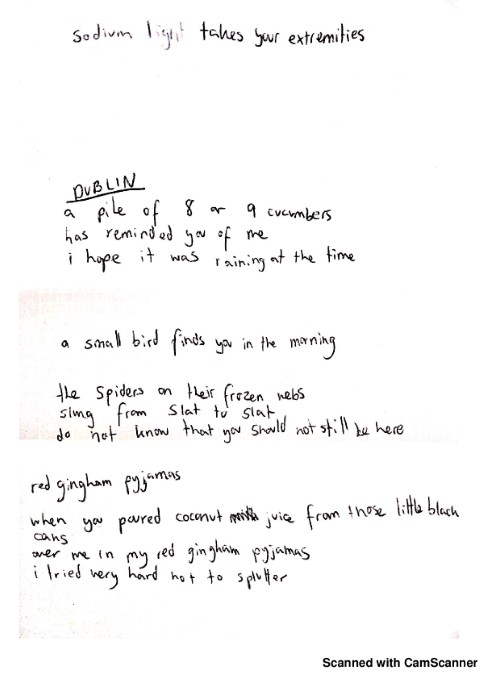 sodium light takes your extremities
DUBLIN
a pile of 8 or 9 cucumbers
has reminded you of me
i hope it was raining at the time
a small bird finds you in the morning
the spiders on their frozen webs
slung from slat to slat
do not know that you should not still be here
red gingham pyjamas
when you poured coconut juice from those little black
cans
over me in my red gingham pyjamas
i tried very hard not to splutter
Scanned with CamScanner